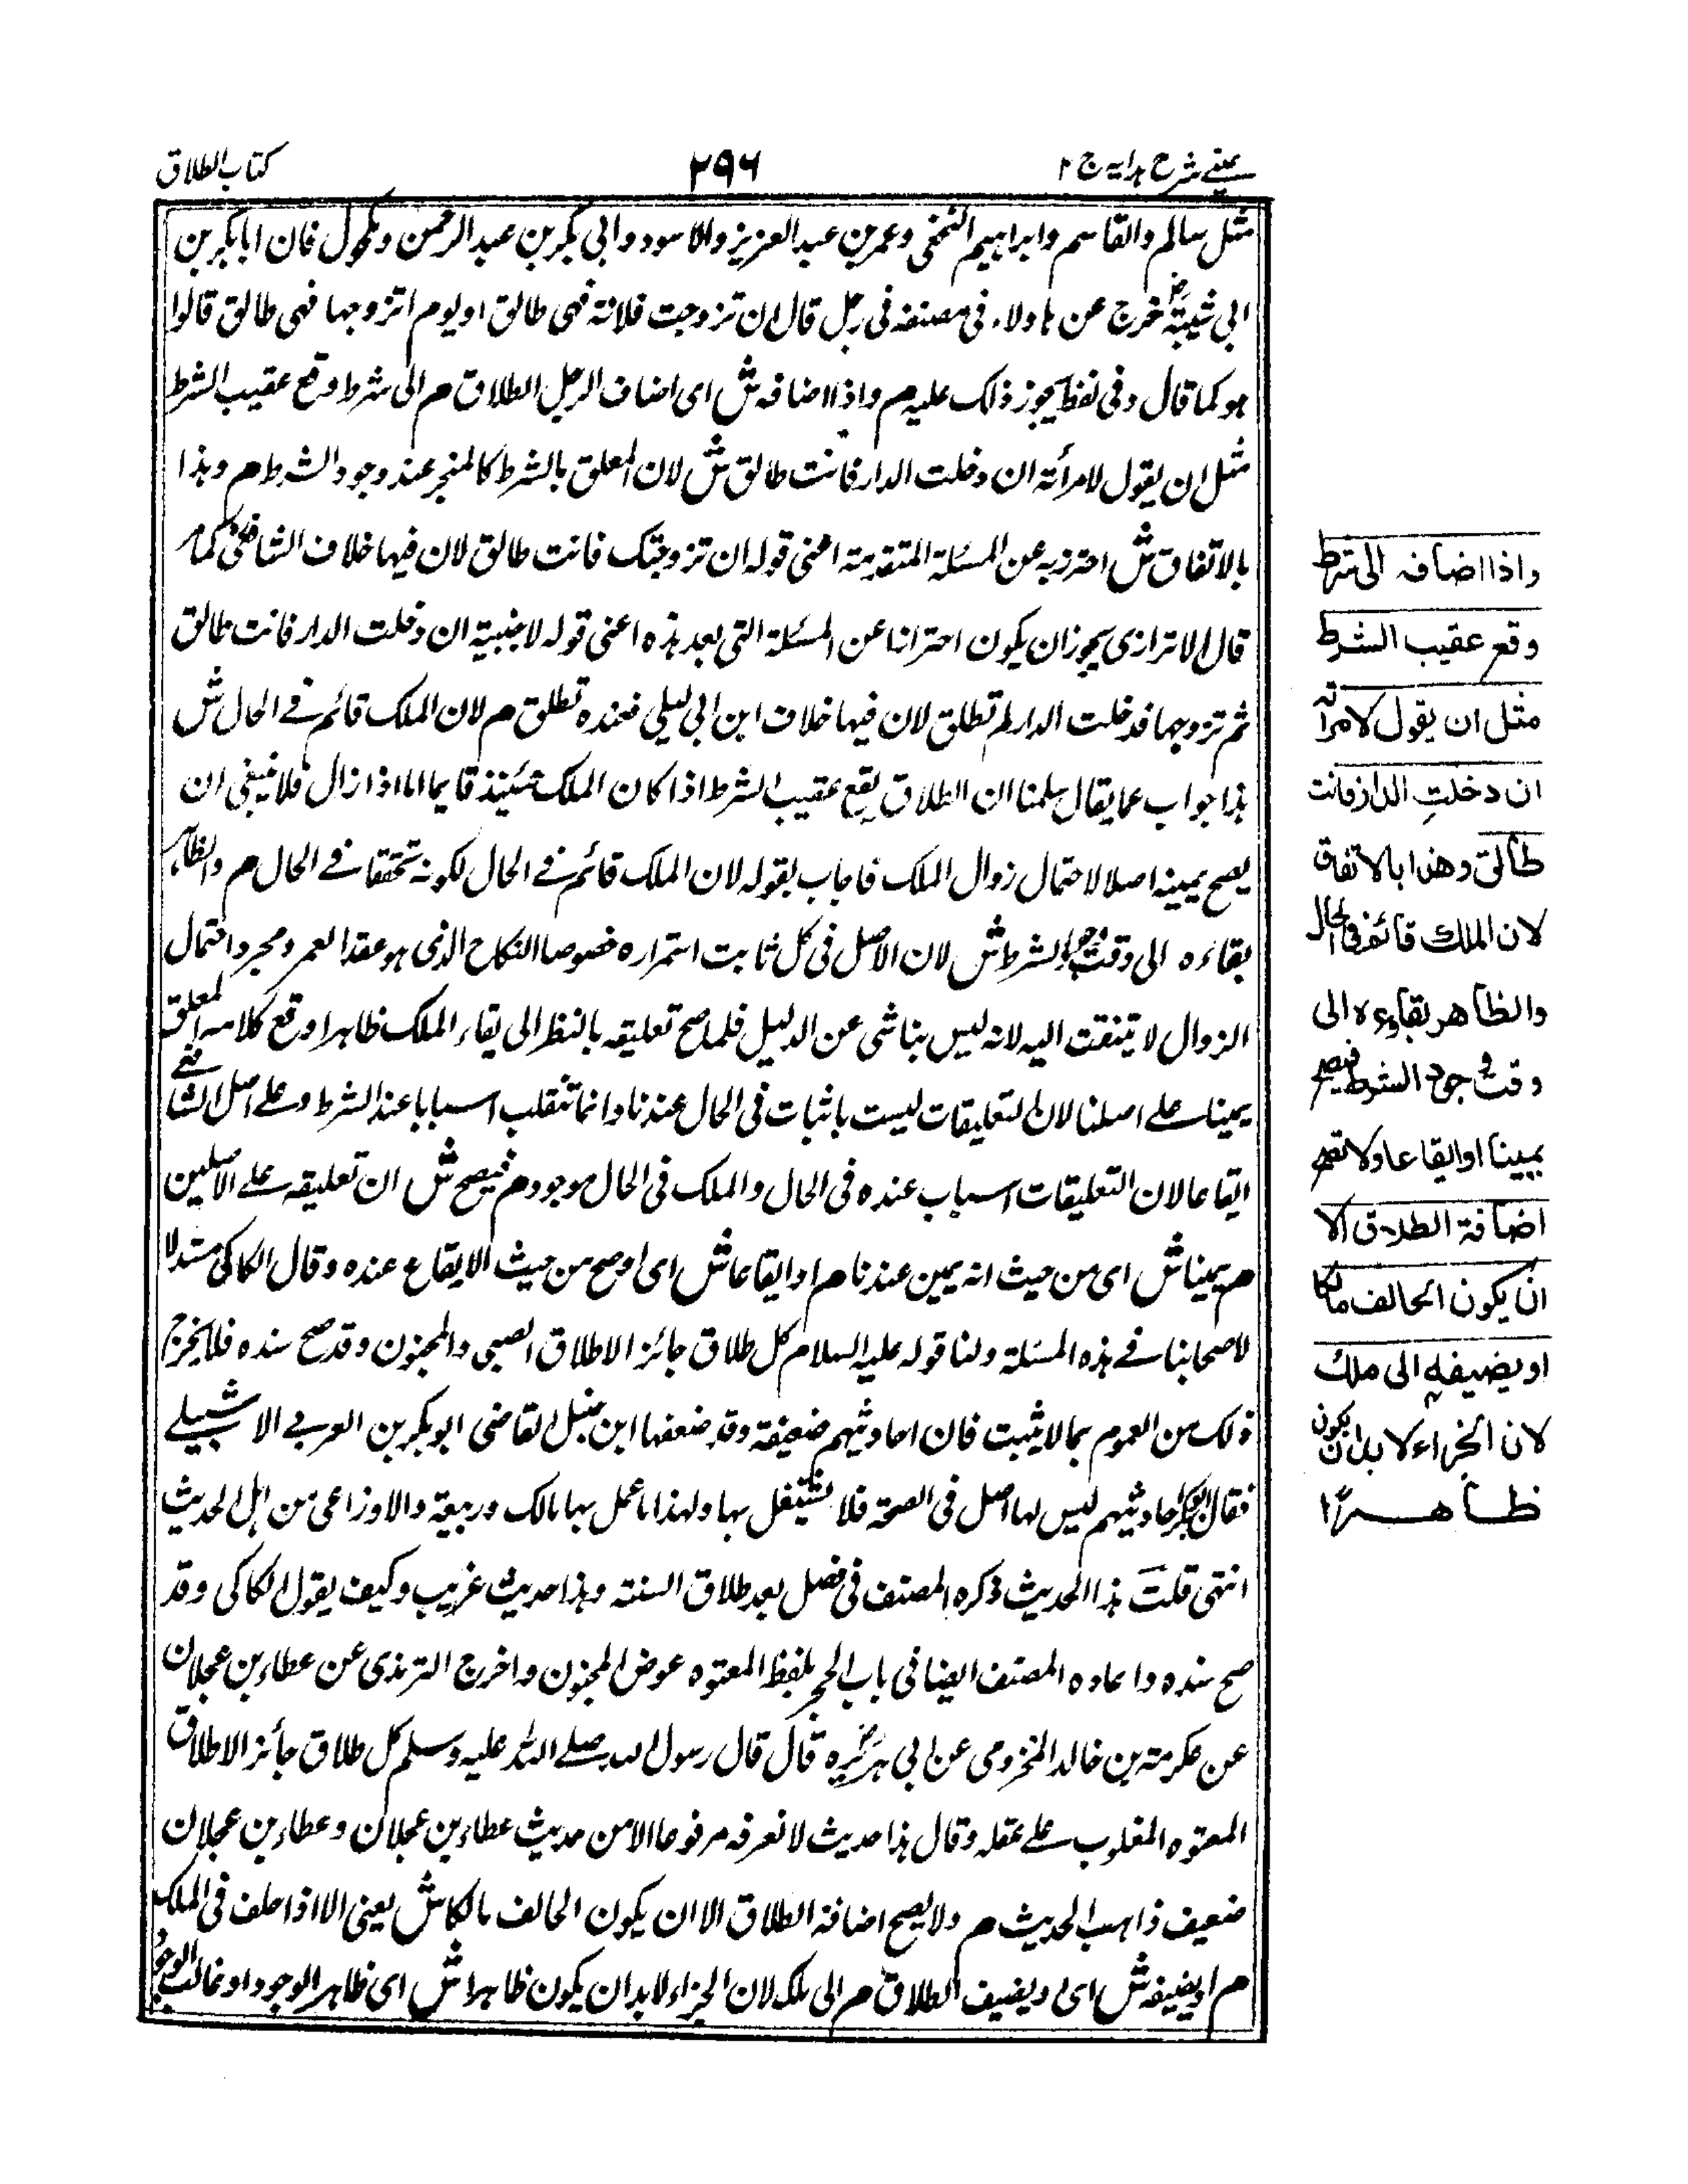 عینی شرح ہدایہ ج ۲
۲۹۶
کتاب الطلاق
مثل سالم والقاسم وابراہیم النخعی وعمر بن عبد العزیز والاسود وابی بکر بن عبد الرحمن ومکحول فان ابا بکر بن
ابی شیبۃ رض خرج عن ہاولاء فی مصنفہ فی رجل قال ان تزوجت فلانۃ فہی طالق او یوم اتزوجہا فہی طالق قالوا
ہو کما قال وفی لفظ یجوز ذلک علیہ م واذا اضافہ ش ای اضاف الرجل الطلاق م الی شرط وقع عقیب الشرط
مثل ان یقول لامرأتہ ان دخلت الدار فانت طالق ش لان المعلق بالشرط کالمنجز عند وجود الشرط م وہذا
بالاتفاق ش احترز بہ عن المسئلۃ المتقدمۃ اعنی قولہ ان تزوجتک فانت طالق لان فیہا خلاف الشافعی کما مر
قال الاترازی یجوز ان یکون احترازا عن المسئلۃ التی بعد ہذہ اعنی قولہ لاجنبیۃ ان دخلت الدار فانت طالق
ثم تزوجہا فدخلت الدار لم تطلق لان فیہا خلاف ابن ابی لیلی فعندہ تطلق م لان الملک قائم فے الحال ش
ہذا جواب عما یقال سلمنا ان الطلاق یقع عقیب الشرط اذا کان الملک حینئذ قایما اما اذا زال فلا ینبغی ان
یصح یمینہ اصلا لاحتمال زوال الملک فاجاب بقولہ لان الملک قائم فے الحال لکونہ متحققا فے الحال م والظاہر
بقاءہ الی وقت وجود الشرط ش لان الاصل فی کل ثابت استمرارہ خصوصا النکاح الذی ہو عقد العمر ومجرد احتمال
الزوال لا یتنفت الیہ لانہ لیس بناشی عن الدلیل فلما صح تعلیقہ بالنظر الی بقاء الملک ظاہرا وقع کلامہ المعلق
یمینا علے اصلنا لان التعلیقات لیست باثبات فی الحال عندنا وانما تنقلب اسبابا عند الشرط وعلے اصل الشافعے
ایقاعا لان التعلیقات اسباب عندہ فی الحال والملک فی الحال موجود م فیصح ش ان تعلیقہ علے الاصلین
م یمینا ش ای من حیث انہ یمین عندنا م او ایقاعا ش ای اوصح من حیث الایقاع عندہ وقال الکاکی مستدلا
لاصحابنا فے ہذہ المسئلۃ ولنا قولہ علیہ السلام کل طلاق جائز الا طلاق الصبی والمجنون وقد صح سندہ فلا یخرج
ذلک من العموم بما لا یثبت فان احادیثہم ضعیفۃ وقد ضعفہا ابن حنبل القاضی ابو بکر بن العربی الاشبیلے
فقال ابو بکر احادیثہم لیس لہا اصل فی الصحۃ فلا یشتغل بہا ولہذا ما عمل بہا مالک وربیعۃ والاوزاعی من اہل الحدیث
انتہی قلت ہذا الحدیث ذکرہ المصنف فی فصل بعد طلاق السنۃ وہذا حدیث غریب وکیف یقول الکاکی وقد
صح سندہ واعادہ المصنف ایضا فی باب الحجر بلفظ المعتوہ عوض المجنون واخرج الترمذی عن عطاء بن عجلان
عن عکرمۃ بن خالد المخزومی عن ابی ہریرہ رض قال قال رسول اللہ صلے اللہ علیہ وسلم کل طلاق جائز الا طلاق
المعتوہ المغلوب علے عقلہ وقال ہذا حدیث لا نعرفہ مرفوعا الا من حدیث عطاء بن عجلان وعطاء بن عجلان
ضعیف ذاہب الحدیث م ولا یصح اضافۃ الطلاق الا ان یکون الحالف مالکا ش یعنی الا اذا حلف فی الملک
م او یضیفہ ش ای ویضیف الطلاق م الی ملک لان الجزاء لا بد ان یکون ظاہرا ش ای ظاہر الوجود او غالب الوجود
واذا اضافہ الی شرط
وقع عقیب الشرط
مثل ان یقول لامرأتہ
ان دخلتِ الدار فانت
طالق وھذا بالاتفاق
لان الملك قائم فی الحال
والظاھر بقاوءہ الی
وقت وجود الشرط فیصح
یمینا او ایقاعا ولا تصح
اضافۃ الطلاق الا
ان یکون الحالف مالکا
او یضیفہ الی ملك
لان الجزاء لا بد ان یکون
ظاھرًا